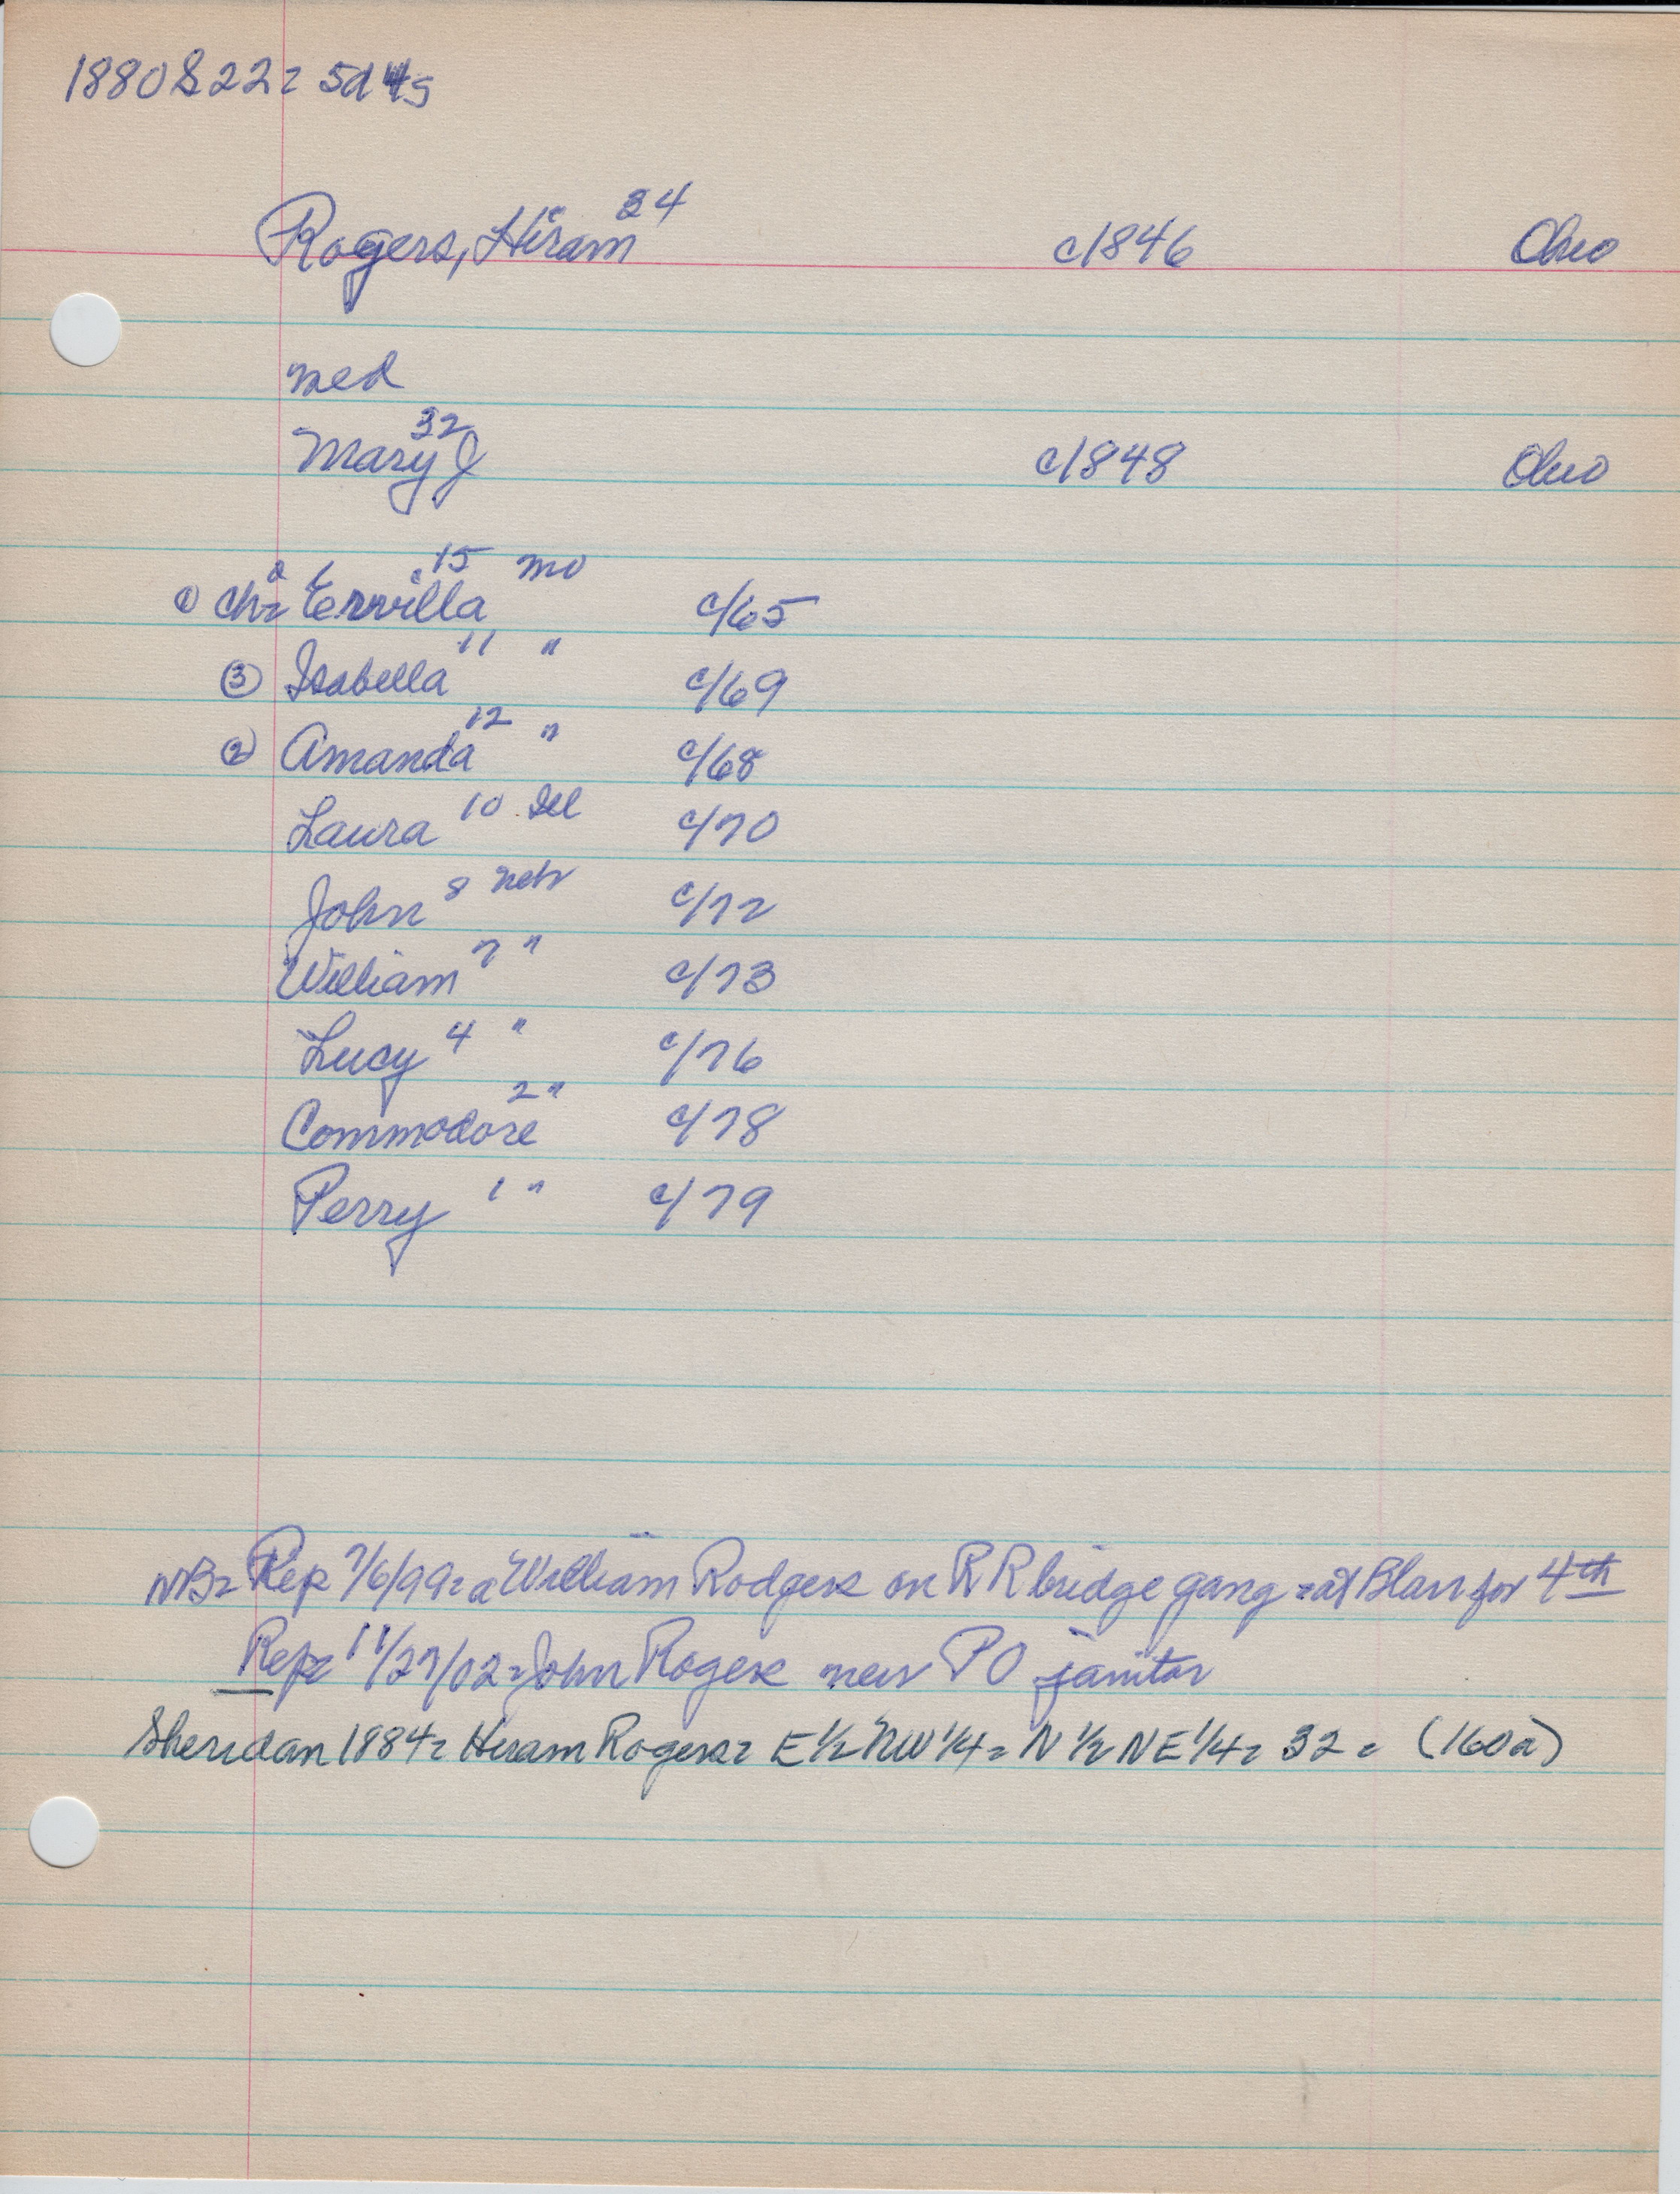 1880 S22= 5d 45
Rogers, Hiram 34 c1846 Ohio
med
Mary J 32 c1848 Ohio
① Ch= Ervilla 15 mo c/65
③ Isabella 11 " c/69
② Amanda 12 " c/68
Laura 10 Ill c/70
John 8 Neb c/72
William 7 " c/73
Lucy 4 " c/76
Commodore 2 " c/78
Perry 1 " c/79
NB= Rep 7/6/99= a William Rodgers on RR bridge gang = at Blair for 4th
Rep= 11/27/02= John Rogers new PO janitor
Sheridan 1884= Hiram Rogers= E 1/2 NW 1/4= N 1/2 NE 1/4= 32= (160a)